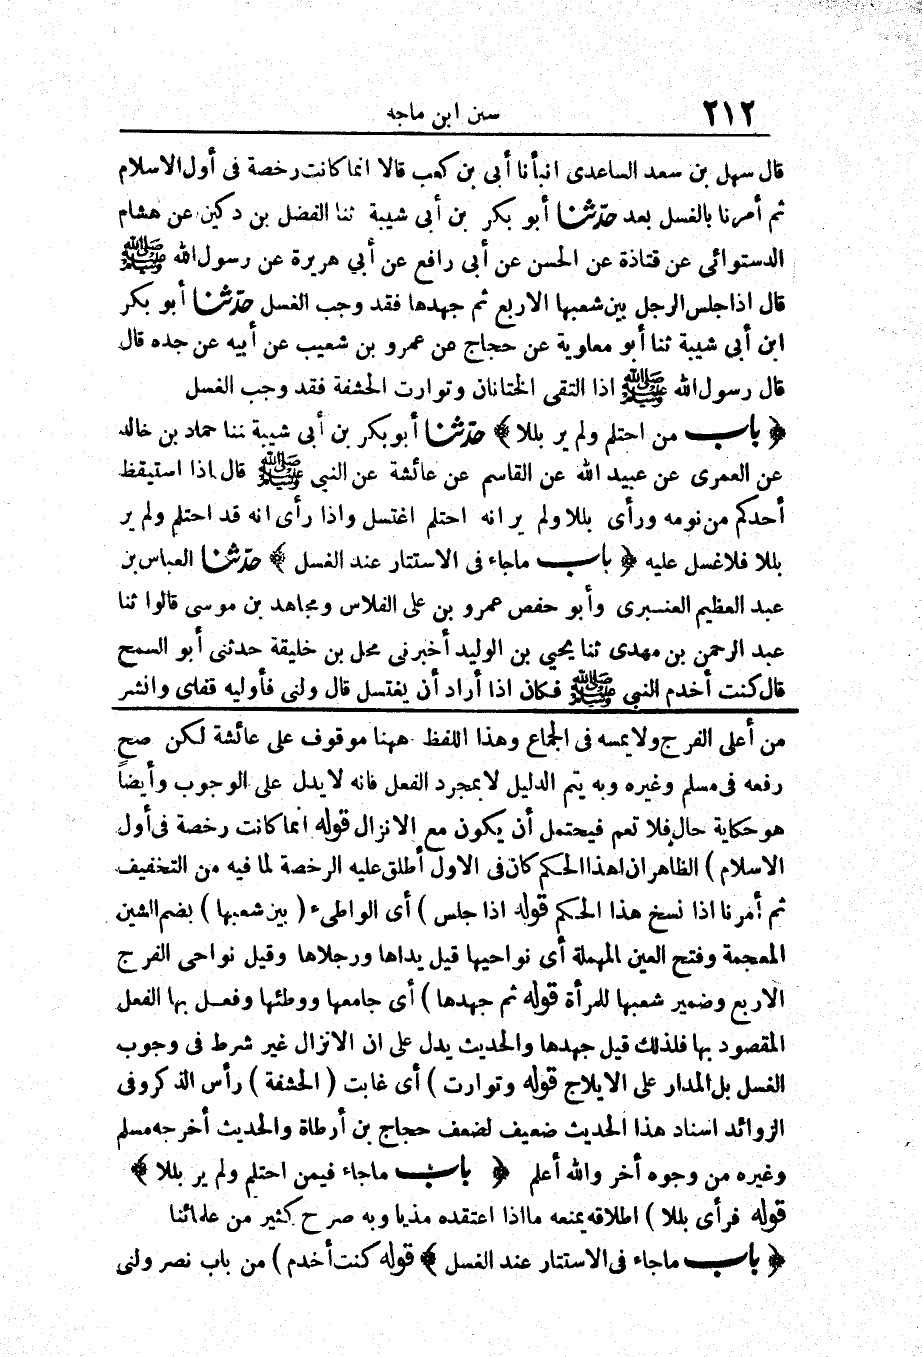 ٢١٢ سنن ابن ماجه
قال سهل بن سعد الساعدى انبأنا أبى بن كعب قالا انما كانت رخصة فى أول الاسلام
ثم أمرنا بالغسل بعد حدّثنا أبو بكر بن أبى شيبة ثنا الفضل بن دكين عن هشام
الدستوائى عن قتادة عن الحسن عن أبى رافع عن أبي هريرة عن رسول الله ﷺ
قال اذا جلس الرجل بين شعبها الاربع ثم جهدها فقد وجب الغسل حدّثنا أبو بكر
ابن أبى شيبة ثنا أبو معاوية عن حجاج عن عمرو بن شعيب عن أبيه عن جده قال
قال رسول الله ﷺ اذا التقى الختانان وتوارت الحشفة فقد وجب الغسل
﴿ باب من احتلم ولم ير بللا ﴾ حدّثنا أبو بكر بن أبى شيبة ثنا حماد بن خالد
عن العمرى عن عبيد الله عن القاسم عن عائشة عن النبى ﷺ قال اذا استيقظ
أحدكم من نومه ورأى بللا ولم ير انه احتلم اغتسل واذا رأى انه قد احتلم ولم ير
بللا فلا غسل عليه ﴿ باب ماجاء فى الاستتار عند الغسل ﴾ حدّثنا العباس بن
عبد العظيم العنبرى وأبو حفص عمرو بن على الفلاس ومجاهد بن موسى قالوا ثنا
عبد الرحمن بن مهدى ثنا يحيى بن الوليد أخبرنى محل بن خليفة حدثنى أبو السمح
قال كنت أخدم النبى ﷺ فكان اذا أراد أن يغتسل قال ولنى فأوليه قفاى وانشر
من أعلى الفرج ولا يمسه فى الجماع وهذا اللفظ ههنا موقوف على عائشة لكن صح
رفعه فى مسلم وغيره وبه يتم الدليل لا بمجرد الفعل فانه لا يدل على الوجوب وأيضاً
هو حكاية حال فلا تعم فيحتمل أن يكون مع الانزال قوله انما كانت رخصة فى أول
الاسلام ) الظاهر ان هذا الحكم كان فى الاول أطلق عليه الرخصة لما فيه من التخفيف
ثم أمرنا اذا نسخ هذا الحكم قوله اذا جلس ) أى الواطىء ( بين شعبها ) بضم الشين
المعجمة وفتح العين المهملة أى نواحيها قيل يداها ورجلاها وقيل نواحى الفرج
الاربع وضمير شعبها للمرأة قوله ثم جهدها ) أى جامعها ووطئها وفعل بها الفعل
المقصود بها فلذلك قيل جهدها والحديث يدل على ان الانزال غير شرط فى وجوب
الغسل بل المدار على الايلاج قوله وتوارت ) أى غابت ( الحشفة ) رأس الذكر وفى
الزوائد اسناد هذا الحديث ضعيف لضعف حجاج بن أرطاة والحديث أخرجه مسلم
وغيره من وجوه أخر والله أعلم ﴿ باب ماجاء فيمن احتلم ولم ير بللا ﴾
قوله فرأى بللا ) اطلاقه يمنعه مااذا اعتقده مذيا وبه صرح كثير من علمائنا
﴿ باب ماجاء فى الاستتار عند الغسل ﴾ قوله كنت أخدم ) من باب نصر ولنى